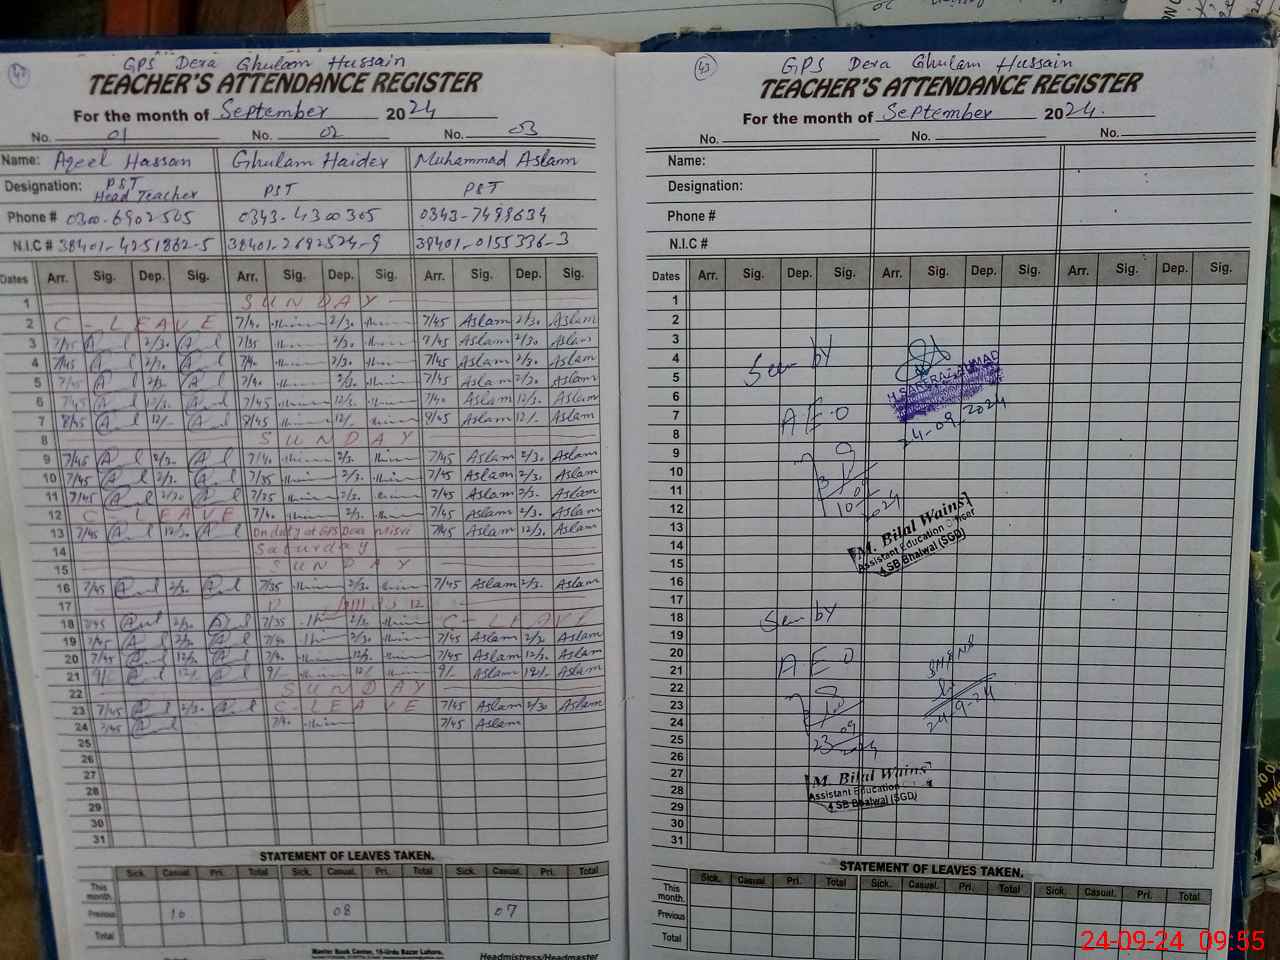 42
GPS Dera Ghulam Hussain
TEACHER'S ATTENDANCE REGISTER
For the month of September 2024
No. 01 No. 02 No. 03
Name: Aqeel Hassan Ghulam Haider Muhammad Aslam
Designation: PST Head Teacher PST PST
Phone # 0300-6902505 0343-4300305 0343-7498634
N.I.C # 38401-4251862-5 38401-2692524-9 38401-0155336-3
Dates Arr. Sig. Dep. Sig. Arr. Sig. Dep. Sig. Arr. Sig. Dep. Sig.
1 SUNDAY
2 C-LEAVE 7/40 2/30 7/45 Aslam 2/30 Aslam
3 7/45 2/30 7/35 2/30 7/45 Aslam 2/30 Aslam
4 7/45 2/30 7/40 2/30 7/45 Aslam 2/30 Aslam
5 7/45 2/30 7/40 2/30 7/45 Aslam 2/30 Aslam
6 7/45 12/30 7/45 12/30 7/40 Aslam 12/30 Aslam
7 8/45 12/- 8/45 12/- Aslam 12/- Aslam
8 SUNDAY
9 7/45 2/30 7/40 2/30 7/45 Aslam 2/30 Aslam
10 7/45 2/30 7/35 2/30 7/45 Aslam 2/30 Aslam
11 7/45 2/30 7/35 2/30 7/45 Aslam 2/30 Aslam
12 C LEAVE 7/40 2/30 7/45 Aslam 2/30 Aslam
13 7/45 12/30 On duty at GPS Dera Misri 7/45 Aslam 12/30 Aslam
14 Saturday
15 SUNDAY
16 7/45 2/30 7/35 2/30 7/45 Aslam 2/30 Aslam
17 12
18 7/45 2/30 7/35 2/30 C-LEAVE
19 7/45 2/30 7/40 2/30 7/45 Aslam 2/30 Aslam
20 7/45 12/30 7/40 12/30 7/45 Aslam 12/30 Aslam
21 9/- 12/- 9/- 12/- 9/- Aslam 12/- Aslam
22 SUNDAY
23 7/45 2/30 C-LEAVE 7/45 Aslam 2/30 Aslam
24 7/45 7/40 7/45 Aslam
25
26
27
28
29
30
31
STATEMENT OF LEAVES TAKEN.
Sick. Casual. Pri. Total Sick. Casual. Pri. Total Sick. Casual. Pri. Total
This month.
Previous 10 08 07
Total
Master Book Center, 15-Urdu Bazar Lahore.
Headmistress/Headmaster
43
GPS Dera Ghulam Hussain
TEACHER'S ATTENDANCE REGISTER
For the month of September 2024.
No. No. No.
Name:
Designation:
Phone #
N.I.C #
Dates Arr. Sig. Dep. Sig. Arr. Sig. Dep. Sig. Arr. Sig. Dep. Sig.
1
2
3
4
5
6
7
8
9
10
11
12
13
14
15
16
17
18
19
20
21
22
23
24
25
26
27
28
29
30
31
Seen by
AEO
24-09-2024
10 09 2024
M. Bilal Wains
Assistant Education Officer
4 SB Bhalwal (SGD)
Seen by
AEO
24-9-24
23 09 2024
M. Bilal Wains
Assistant Education
4 SB Bhalwal (SGD)
STATEMENT OF LEAVES TAKEN.
Sick. Casual. Pri. Total Sick. Casual. Pri. Total Sick. Casual. Pri. Total
This month.
Previous
Total
24-09-24 09:55